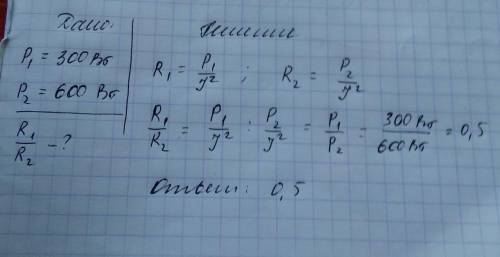 Дано:
P₁ = 300 Вт
P₂ = 600 Вт
R₁/R₂ - ?
Решение
R₁ = P₁/y² ; R₂ = P₂/y²
R₁/R₂ = P₁/y² : P₂/y² = P₁/P₂ = 300 Вт/600 Вт = 0,5
Ответ: 0,5